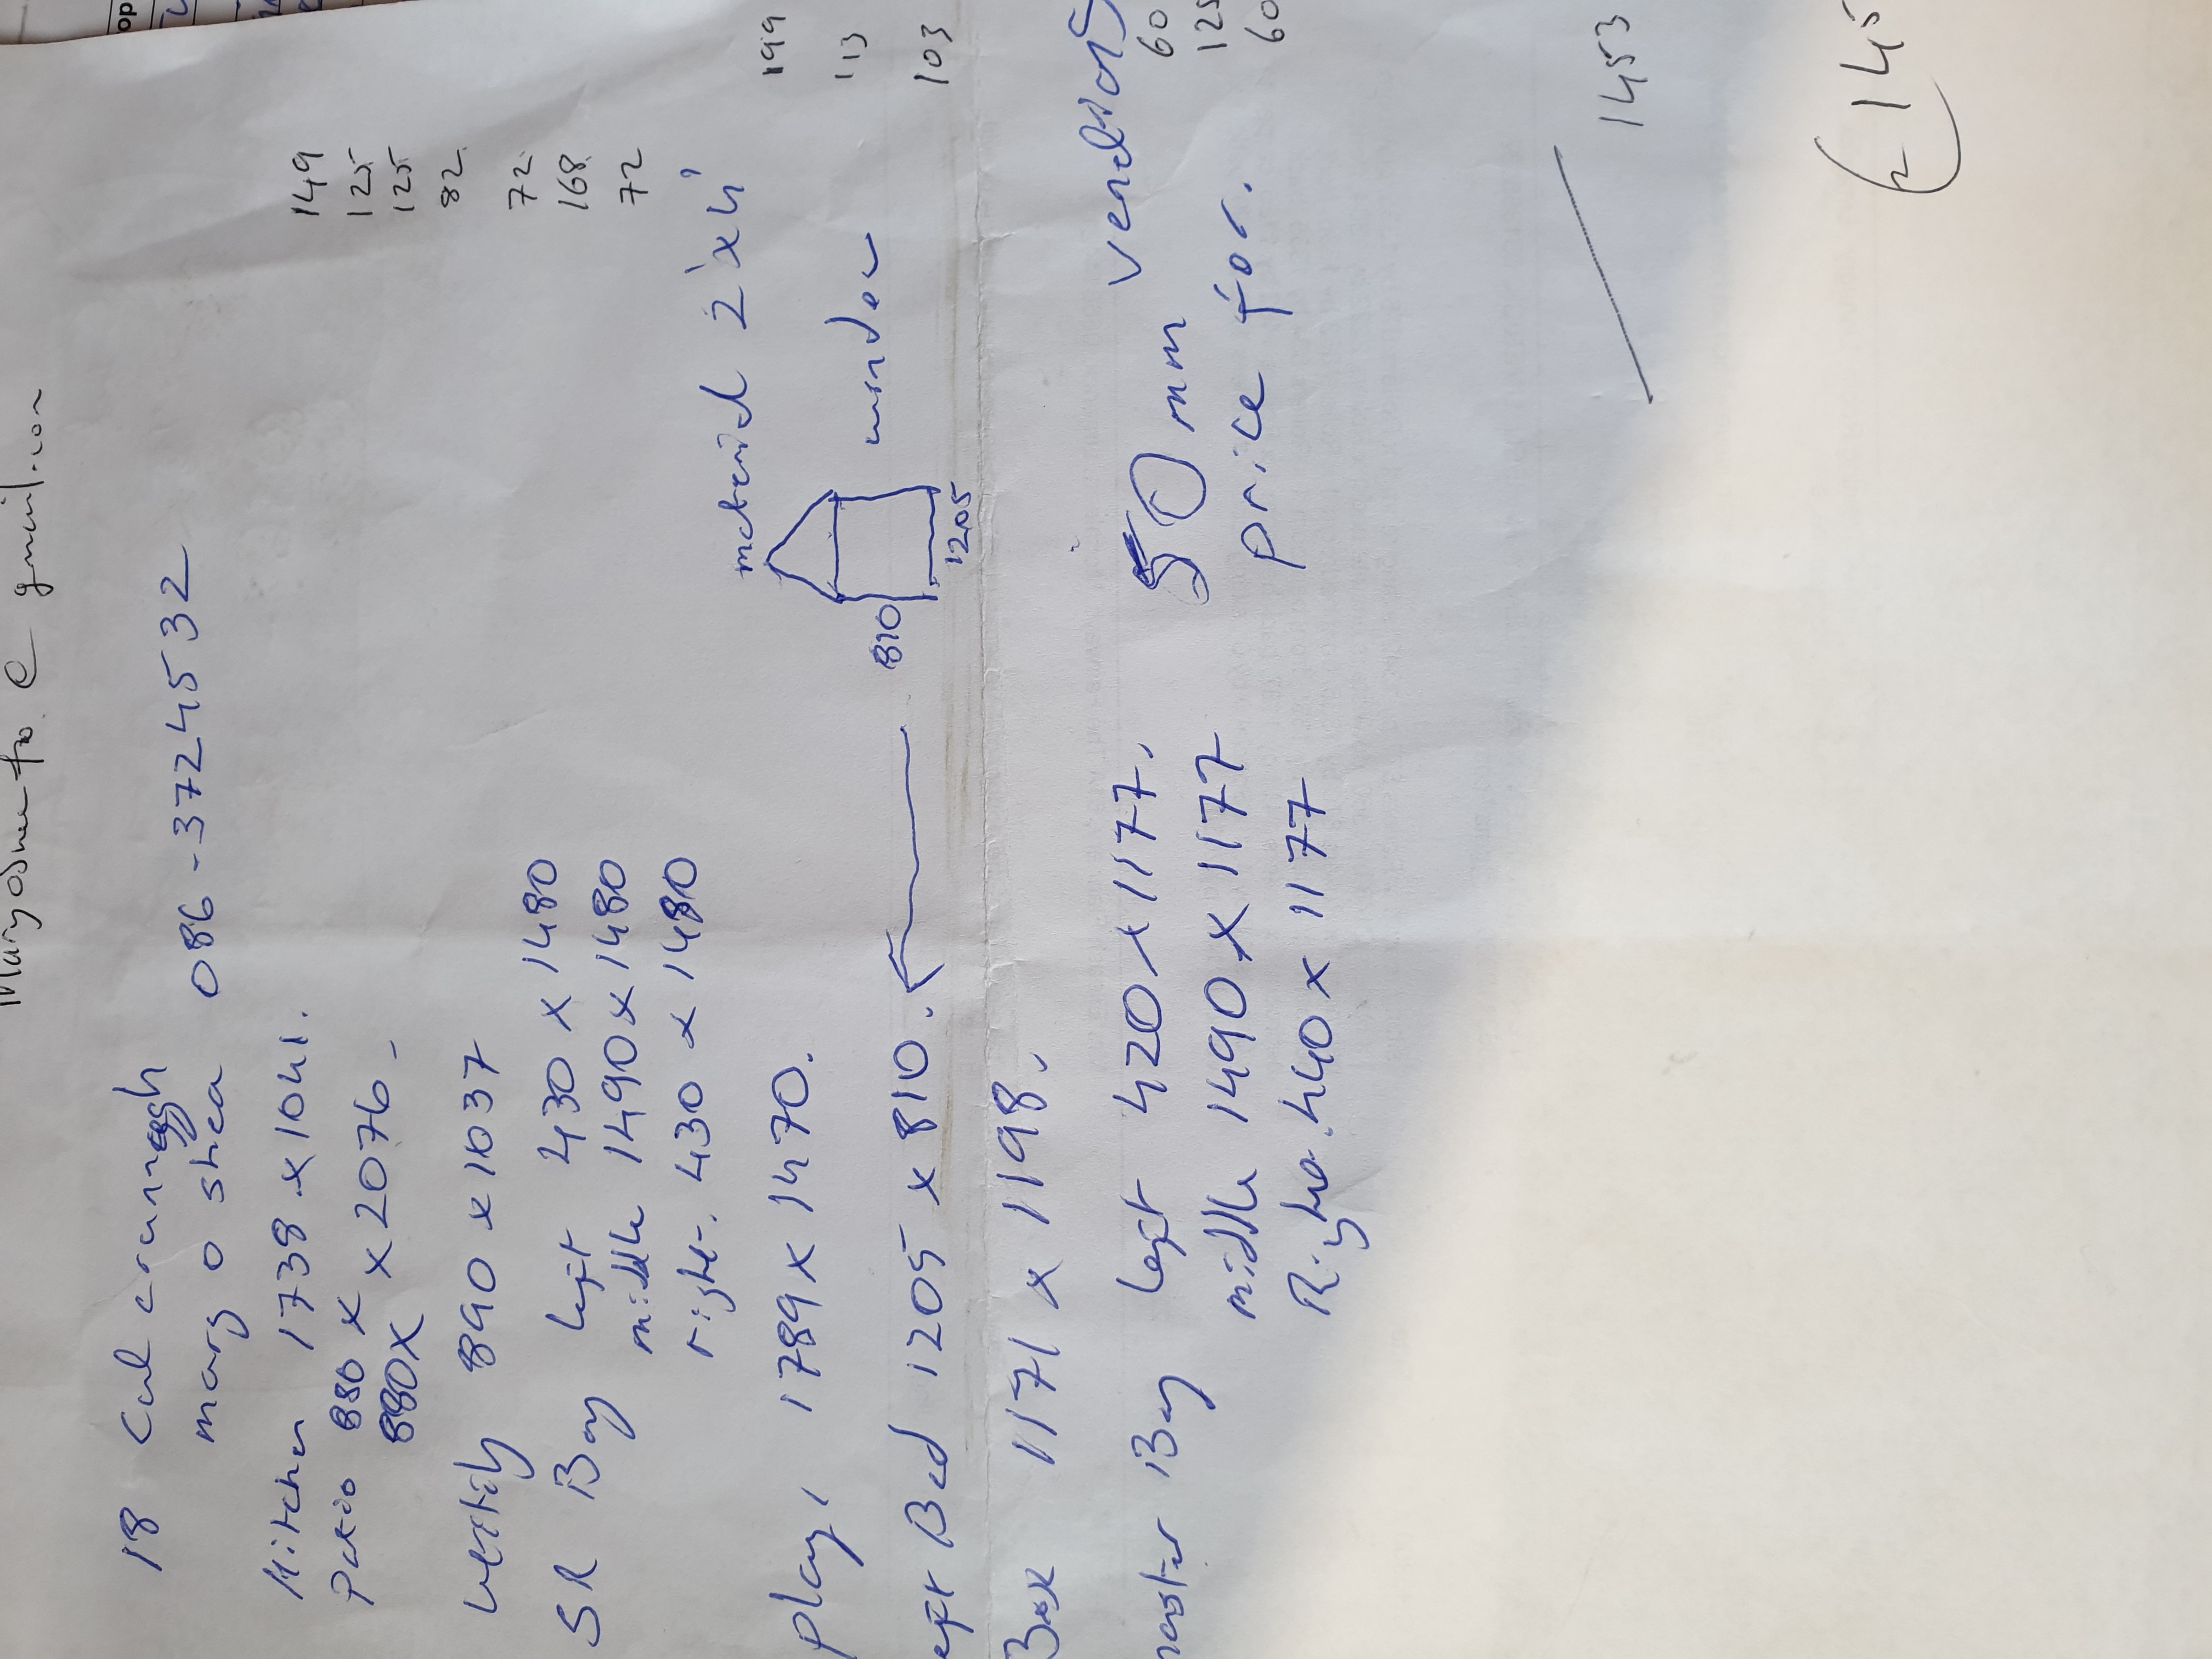 @ gmail.com
18 Cul crannagh
mary o shea 086-3724532
Kitchen 1738 x 1041. 149
Patio 880 x 125
880 x x 2076- 125
Utility 890 x 1037 82
SR Bay left 430 x 1480 72
middle 1490 x 1480 168
right. 430 x 1480 72
material 2'x4'
play, 1789 x 1470. 199
eft Bed 1205 x 810. 810 1205 window 113
Box 1171 x 1198. 103
master Bay left 420 x 1177. 50 mm 60
middle 1490 x 1177 price for. 125
Right. 440 x 1177 60
1453
€ 145